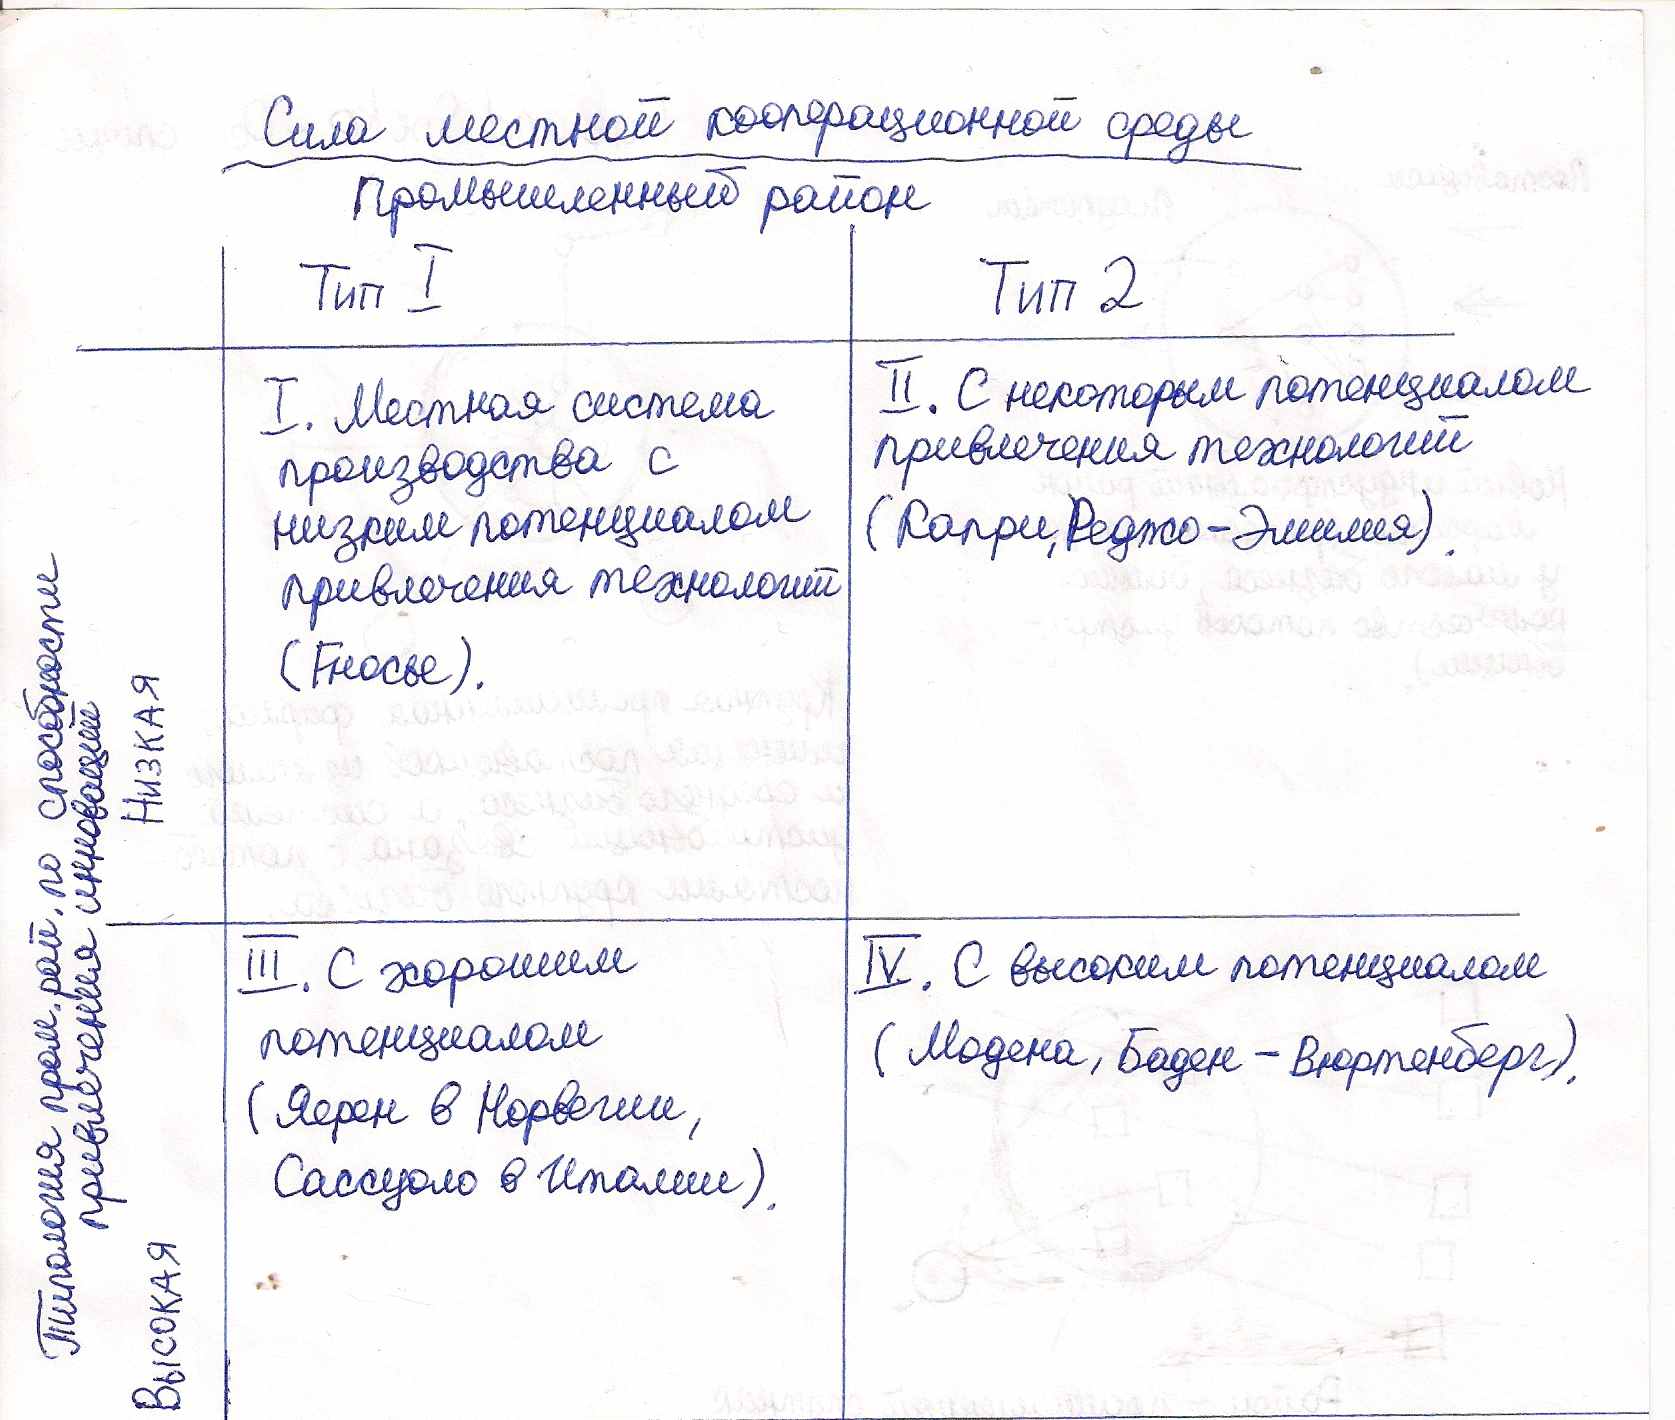 Сила местной кооперационной среды
Промышленный район
Тип I
Тип 2
Типология пром. рай. по способности
привлечения инноваций
Низкая
I. Местная система
производства с
низким потенциалом
привлечения технологий
(Гносье).
II. С некоторым потенциалом
привлечения технологий
(Капри, Реджо-Эмилия).
Высокая
III. С хорошим
потенциалом
(Яерен в Норвегии,
Сассуоло в Италии).
IV. С высоким потенциалом
(Модена, Баден-Вюртенберг).